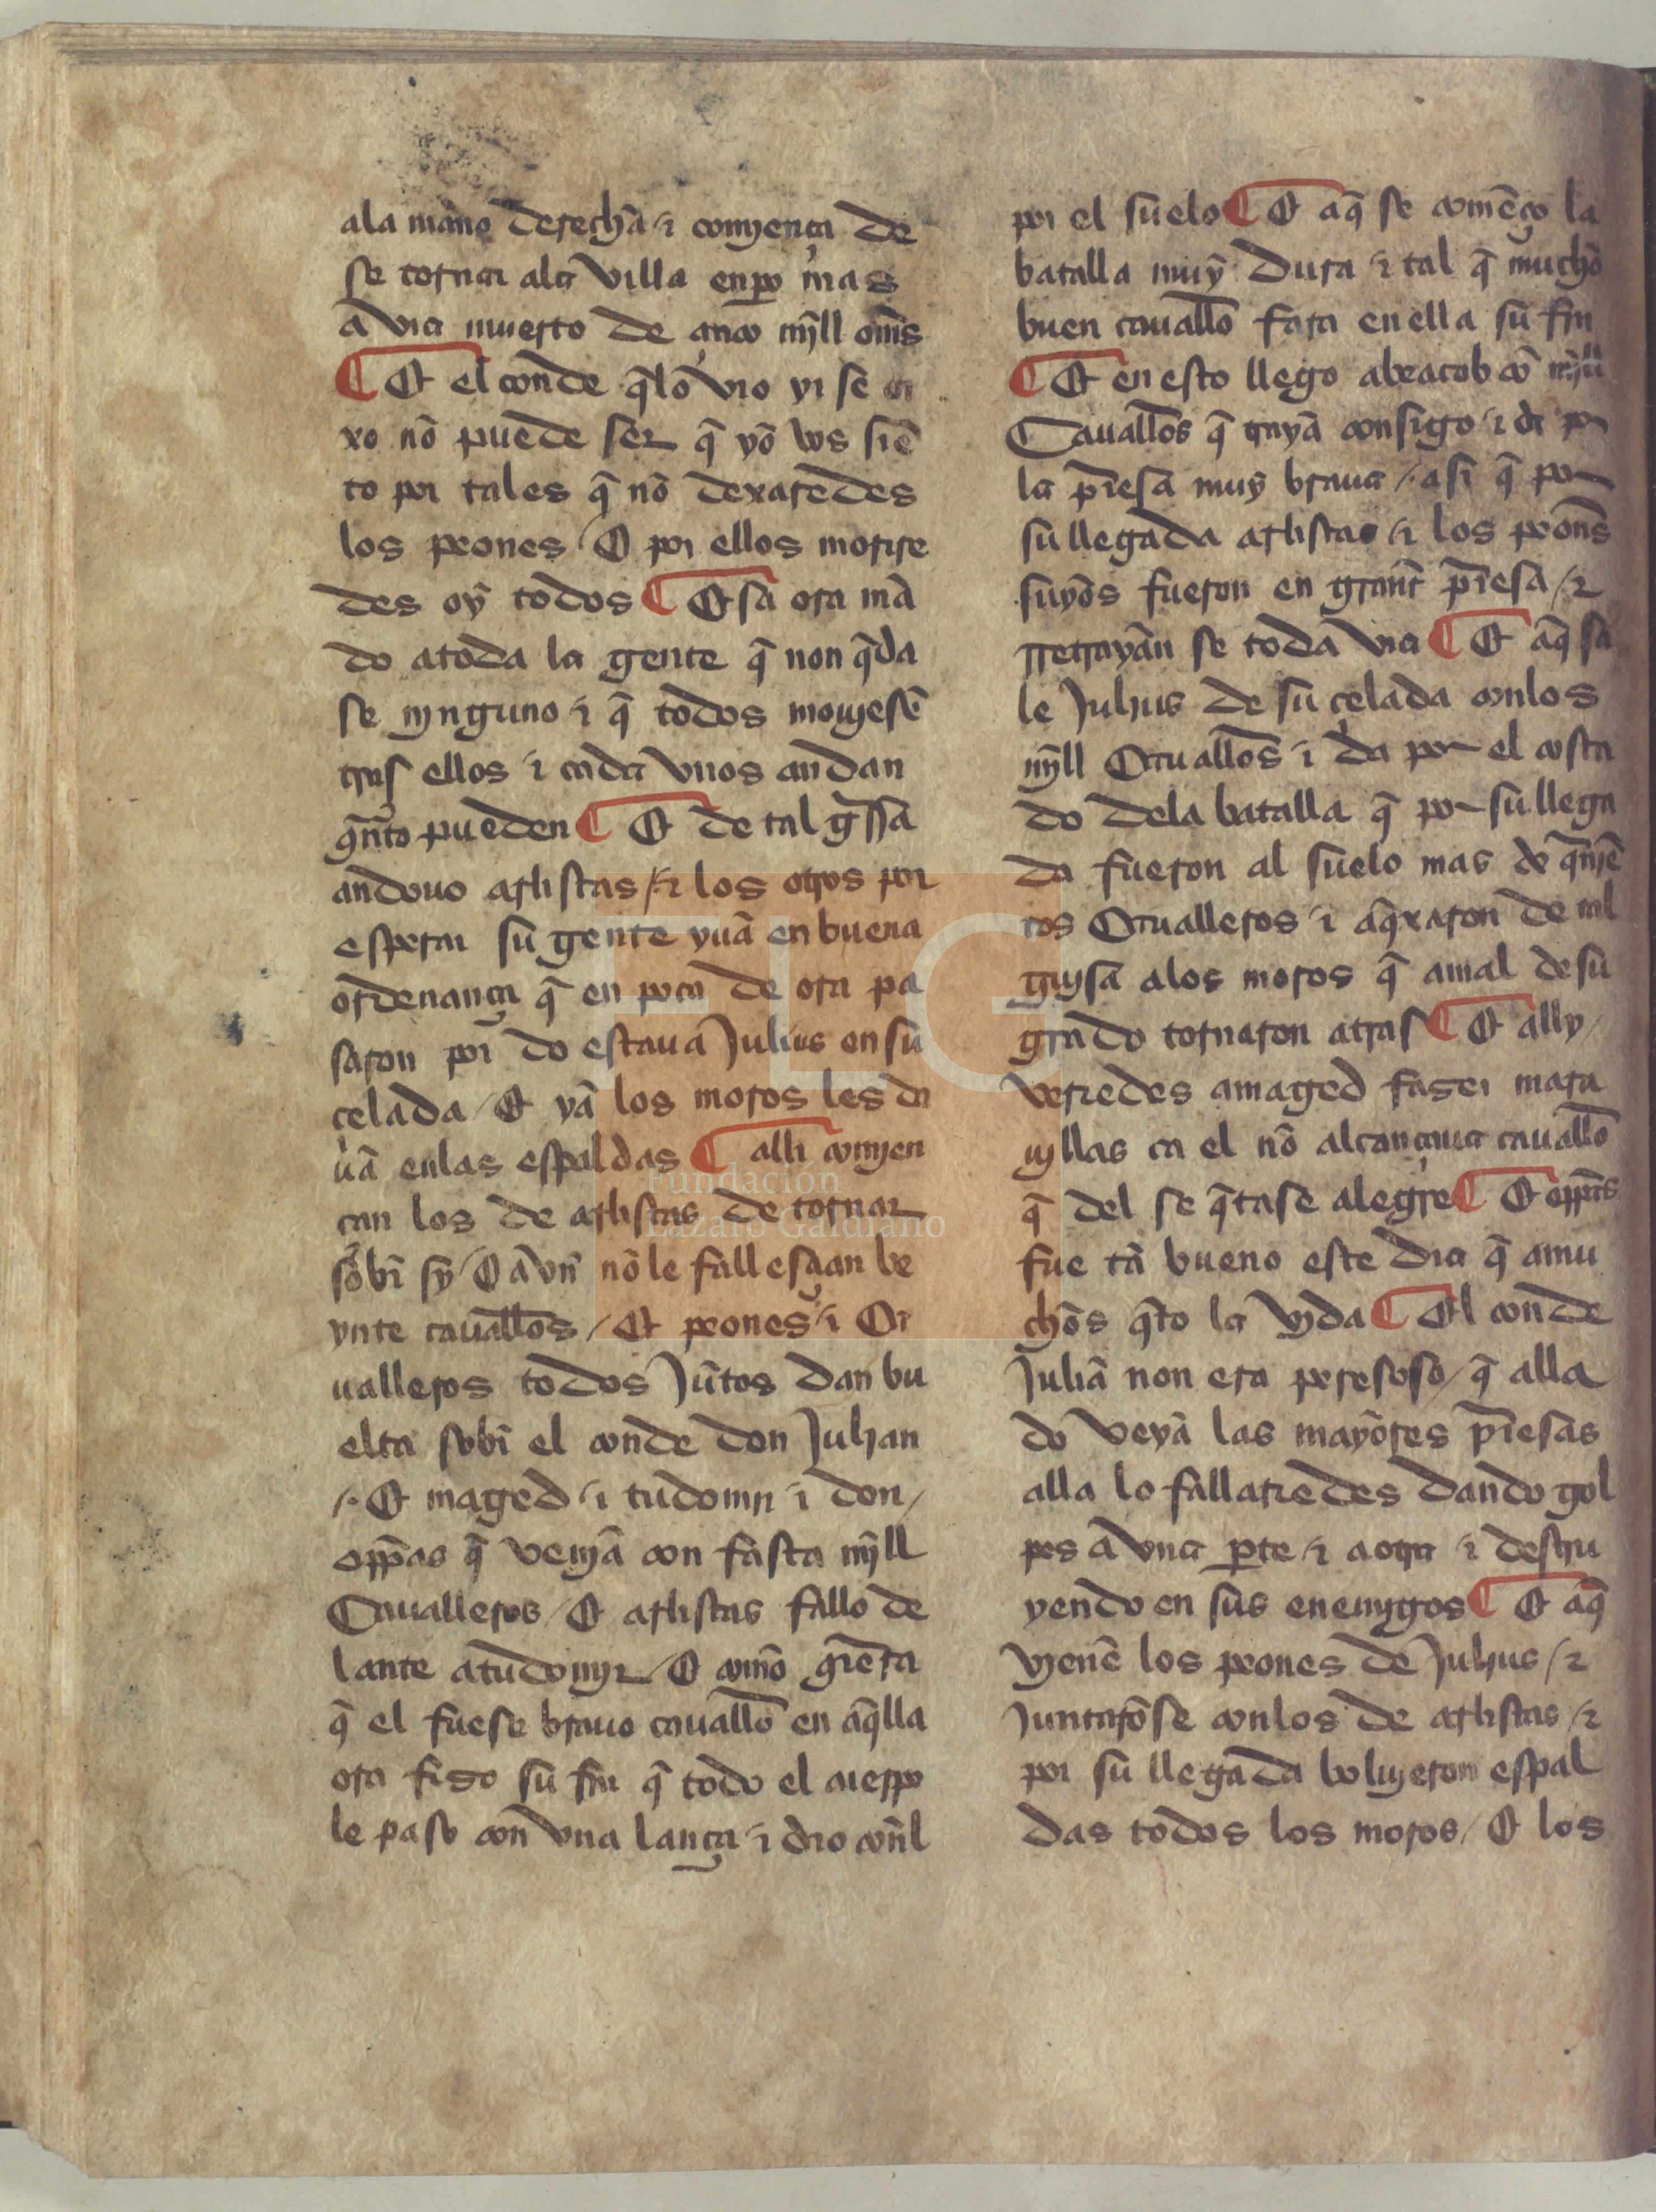 ala mano derecha ⁊ comjença de
se tornar ala villa enpo mas
a via muerto de çinco mjll om̃s
¶ Et el conde q̃lo vio yr se di
xo nõ puede ser q̃ yo vos siẽ
to por tales q̃ nõ dexaredes
los peones / O por ellos morire
des oy todos ¶ Esa ora mã
do atoda la gente q̃ non q̃da
se njnguno ⁊ q̃ todos moujesẽ
tras ellos ⁊ cada vnos andan
q̃nto pueden ¶ Et de tal gssa
andouo arlistas / ⁊ los otros por
esperar su gente yuã en buena
ordenança q̃ en poca de ora pa
saron por do estaua Julius en su
çelada / Et ya los moros les da
uã enlas espaldas ¶ alli comjen
çan los de arlistas de tornar
sobr̃ sy / O avn nõ le fallesçian ve
ynte cauallos̃ / Et peones ⁊ Ca
ualleros todos Jũtos dan bu
elta sobr̃ el conde don Julian
/. Et maged ⁊ tudomir ⁊ don /
opp̃as q̃ venjã con fasta mjll
Caualleros / Et arlistas fallo de
lante atudomjr / O como q̃era
q̃ el fuese brauo cauallõ en aq̃lla
ora fizo su fin q̃ todo el cuerpo
le paso con vna lança ⁊ dio cõnl
por el suelo ¶ Et aq̃ se comẽço la
batalla muy dura ⁊ tal q̃ mucho
buen cauallõ fara en ella su fin
¶ Et en esto llego abracob cõ mjll
Cauallos̃ q̃ trayã consigo ⁊ da por
la priesa muy braua /. asi q̃ por
su llegada arlistas ⁊ los peoñs
suyos fueron en grant priesa / ⁊
rretrayan se toda via ¶ Et aq̃ sa
le Julius de su çelada conlos
mjll Cauallos̃ ⁊ da por el costa
do dela batalla q̃ por su llega
da fueron al suelo mas de q̃njẽ
tos Caualleros ⁊ aq̃xaron de tal
gujsa alos moros q̃ amal de su
grado tornaron atras ¶ Et ally /
veriedes amaged faser mara
ujllas ca el nõ alcançaua cauallõ
q̃ del se q̃tase alegre ¶ Et opp̃as
fue tã bueno este dia q̃ amu
chos q̃to la vjda ¶ El conde
Juliã non era peresoso / q̃ alla
do veyã las mayores priesas
alla lo fallariedes dando gol
pes a vna p̱te ⁊ a otra ⁊ destru
yendo en sus enemjgos ¶ Et aq̃
vjenẽ los peones de Julius / ⁊
Juntarõse conlos de arlistas / ⁊
por su llegada boluieron espal
das todos los moros / Et los
Fundación
Lázaro Galdiano
FLG